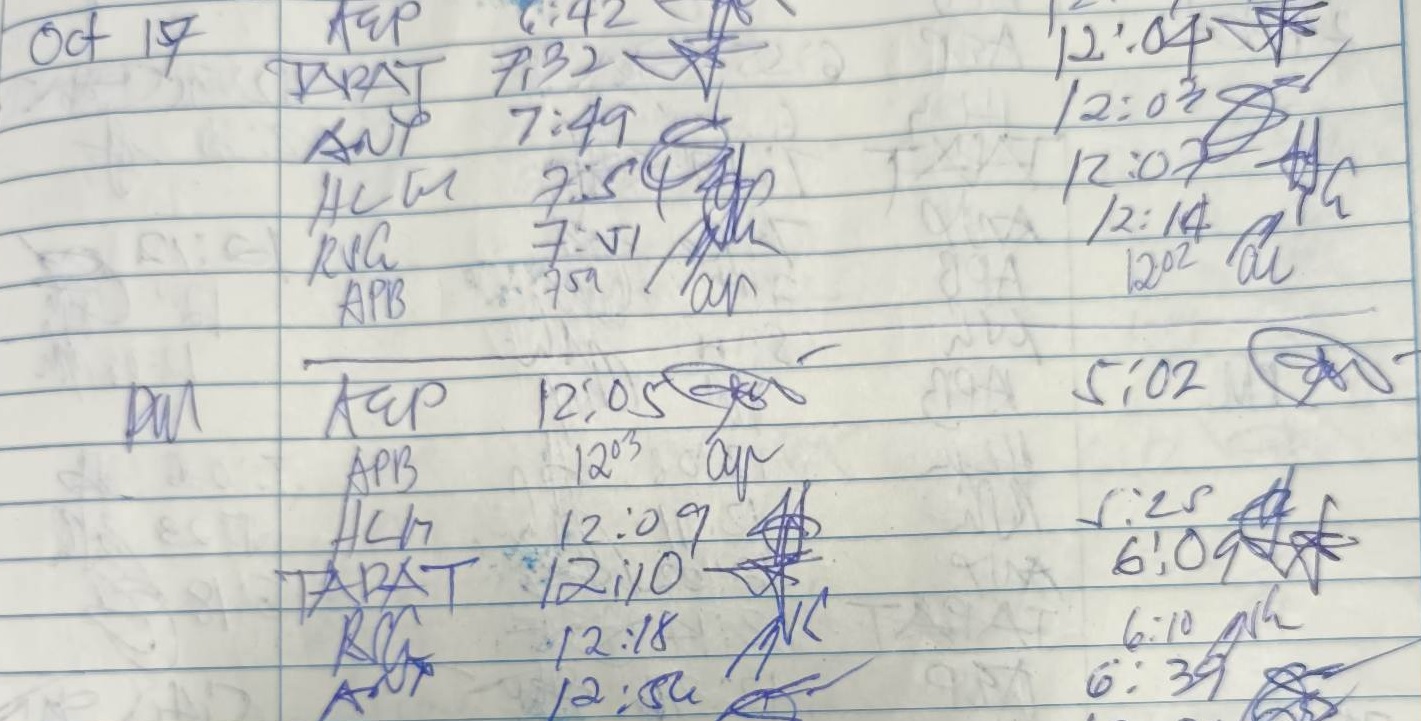 Oct 17 AEP 6:42
TABAT 7:32 12:04
ANT 7:49 12:03
HCM 7:54 12:07
RSG 7:51 12:14
APB 759 1202
PM AEP 12:05 5:02
APB 1203
HCM 12:09 5:25
TABAT 12:10 6:09
RSG 12:18 6:10
ANT 12:54 6:39